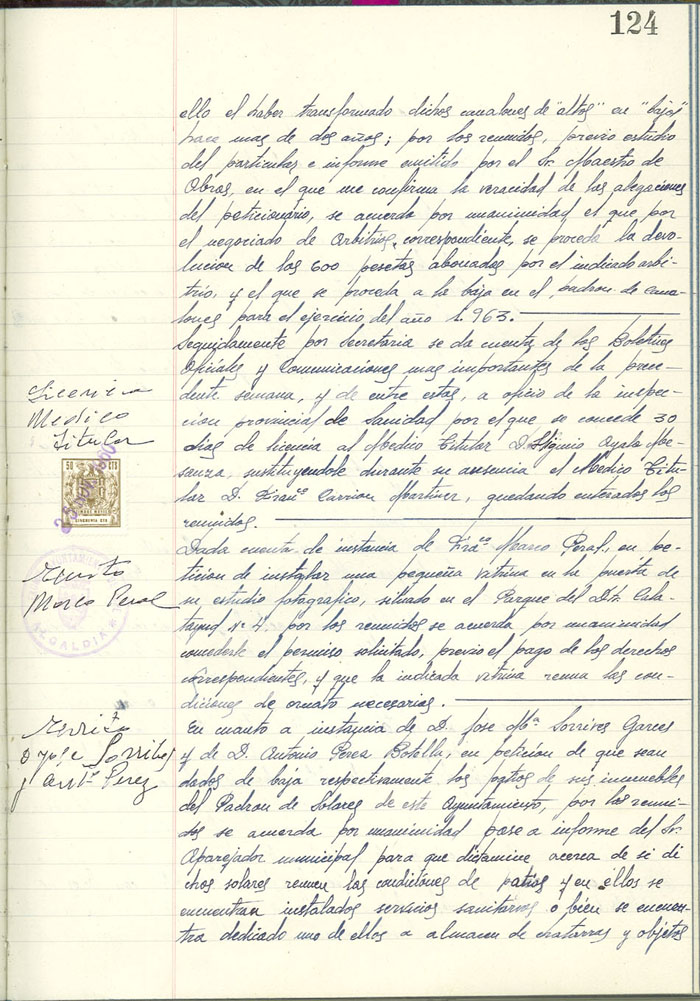 124
ello el haber transformado dichos canalones de "altos" en "bajos"
hace mas de dos años; por los reunidos, previo estudio
del particular e informe emitido por el Sr. Maestro de
Obras, en el que me confirma la veracidad de las alegaciones
del peticionario, se acuerda por unanimidad el que por
el negociado de Arbitrios, correspondiente, se proceda la devo-
lucion de las 600 pesetas abonadas por el indicado arbi-
trio, y el que se proceda a la baja en el, padron de cana-
lones para el ejercicio del año 1.963.
Seguidamente por Secretaria se da cuenta de los Boletines
Oficiales y Comunicaciones mas importantes de la prece-
dente semana, y de entre estas, a oficio de la inspec-
cion provincial de Sanidad por el que se concede 30
dias de licencia al Medico Titular D. Higinio Ayala Me-
sanza, sustituyendole durante su ausencia el Medico Titu-
lar D. Franco Carrion Martinez, quedando enterados los
reunidos.
Licencia
Medico
Titular
50 CTS
Dada cuenta de instancia de Franco Marco Peral, en pe-
ticion de instalar una pequeña vitrina en la puerta de
su estudio fotografico, situado en el Parque del Dtr. Cala-
tayud Nº 4; por los reunidos se acuerda por unanimidad
concederle el permiso solicitado, previo el pago de los derechos
correspondientes, y que la indicada vitrina reuna las con-
diciones de ornato necesarias.
Marco Peral
ALCALDIA
En cuanto a instancia de D. Jose Mª Sorrives Garces
y de D. Antonio Perez Botella, en peticion de que sean
dados de baja respectivamente los patios de sus inmuebles
del Padron de Solares de este Ayuntamiento, por los reuni-
dos se acuerda por unanimidad pase a informe del Sr.
Aparejador municipal para que dictamine acerca de si di-
chos solares reunen las condiciones de patios y en ellos se
encuentran instalados servicios sanitarios o bien se encuen-
tra dedicado uno de ellos a almacen de chatarras y objetos
Jose Sorribes
y Antº Perez